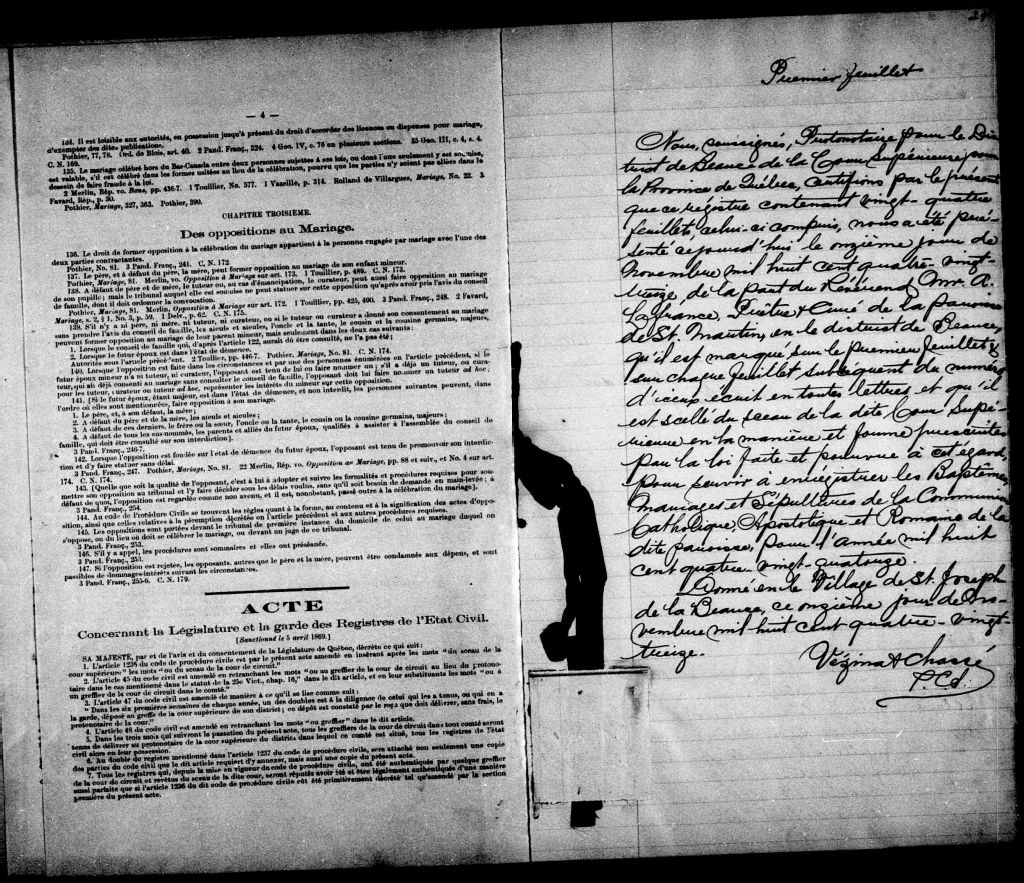 — 4 —
134. Il est loisible aux autorités, en possession jusqu'à présent du droit d'accorder des licences ou dispenses pour mariage,
d'exempter des dites publications.
Pothier, 77, 78. Ord. de Blois, art. 40. 2 Pand. Franç., 324. 4 Geo. IV, c. 76 en plusieurs sections. 35 Geo. III, c. 4, s. 4.
C. N. 169.
135. Le mariage célébré hors du Bas-Canada entre deux personnes sujettes à ses lois, ou dont l'une seulement y est soumise,
est valable, s'il est célébré dans les formes usitées au lieu de la célébration, pourvu que les parties n'y soient pas allées dans le
dessein de faire fraude à la loi.
2 Merlin, Rép. vo. Bans, pp. 436-7. 1 Toullier, No. 577. 1 Vazeille, p. 314. Rolland de Villargues, Mariage, No. 22. 3
Favard, Rép., p. 30.
Pothier, Mariage, 327, 363. Pothier, 390.
CHAPITRE TROISIEME.
Des oppositions au Mariage.
136. Le droit de former opposition à la célébration du mariage appartient à la personne engagée par mariage avec l'une des
deux parties contractantes.
Pothier, No. 81. 3 Pand. Franç., 241. C. N. 172
137. Le père, et à défaut du père, la mère, peut former opposition au mariage de son enfant mineur.
Pothier, Mariage, 81. Merlin, vo. Opposition à Mariage sur art. 173. 1 Touillier, p. 489. C. N. 173.
138. A défaut de père et de mère, le tuteur ou, au cas d'émancipation, le curateur, peut aussi faire opposition au mariage
de son pupille; mais le tribunal auquel elle est soumise ne peut statuer sur cette opposition qu'après avoir pris l'avis du conseil
de famille, dont il doit ordonner la convocation.
Pothier, Mariage, 81. Merlin, Opposition à Mariage sur art. 172. 1 Toullier, pp. 425, 490. 3 Pand. Franç., 248. 2 Favard,
Mariage, s. 2, § 1, No. 3, p. 59. 1 Delv., p. 62. C. N. 175.
139. S'il n'y a ni père, ni mère, ni tuteur, ni curateur, ou si le tuteur ou curateur a donné son consentement au mariage
sans prendre l'avis du conseil de famille, les aïeuls et aïeules, l'oncle et la tante, le cousin et la cousine germains, majeurs,
peuvent former opposition au mariage de leur parent mineur, mais seulement dans les deux cas suivants:
1. Lorsque le conseil de famille qui, d'après l'article 122, aurait dû être consulté, ne l'a pas été;
2. Lorsque le futur époux est dans l'état de démence.
Autorités sous l'article précédent. 2 Toullier, 446-7. Pothier, Mariage, No. 81. C. N. 174.
140. Lorsque l'opposition est faite dans les circonstances et par une des personnes énumérées en l'article précédent, si le
futur époux mineur n'a ni tuteur, ni curateur, l'opposant est tenu de lui en faire nommer un; s'il a déjà un tuteur, ou curateur,
qui ait déjà consenti au mariage sans consulter le conseil de famille, l'opposant doit lui faire nommer un tuteur ad hoc;
pour les tuteur, curateur ou tuteur ad hoc, représenter les intérêts du mineur sur cette opposition.
141. [Si le futur époux, étant majeur, est dans l'état de démence, et non interdit, les personnes suivantes peuvent, dans
l'ordre où elles sont mentionnées, faire opposition à son mariage.
1. Le père, et, à son défaut, la mère;
2. A défaut du père et de la mère, les aïeuls et aïeules;
3. A défaut de ces derniers, le frère ou la sœur, l'oncle ou la tante, le cousin ou la cousine germains, majeurs;
4. A défaut de tous les sus-nommés, les parents et alliés du futur époux, qualifiés à assister à l'assemblée du conseil de
famille, qui doit être consulté sur son interdiction].
3 Pand. Franç., 246-7.
142. Lorsque l'opposition est fondée sur l'état de démence du futur époux, l'opposant est tenu de promouvoir son interdiction
et d'y faire statuer sans délai.
3 Pand. Franç., 247. Pothier, Mariage, No. 81. 22 Merlin, Rép. vo. Opposition au Mariage, pp. 88 et suiv., et No. 4 sur art.
174. C. N. 174.
143. [Quelle que soit la qualité de l'opposant, c'est à lui à adopter et suivre les formalités et procédures requises pour soumettre
son opposition au tribunal et l'y faire décider sous les délais voulus, sans qu'il soit besoin de demande en main-levée; à
défaut de quoi, l'opposition est regardée comme non avenue, et il est, nonobstant, passé outre à la célébration du mariage].
3 Pand. Franç., 254.
144. Au code de Procédure Civile se trouvent les règles quant à la forme, au contenu et à la signification des actes d'opposition,
ainsi que celles relatives à la péremption décrétée en l'article précédent et aux autres procédures requises.
145. Les oppositions sont portées devant le tribunal de première instance du domicile de celui au mariage duquel on
s'oppose, ou du lieu où doit se célébrer le mariage, ou devant un juge de ce tribunal.
3 Pand. Franç., 253.
146. S'il y a appel, les procédures sont sommaires et elles ont préséance.
3 Pand. Franç., 253.
147. Si l'opposition est rejetée, les opposants, autres que le père et la mère, peuvent être condamnés aux dépens, et sont
passibles de dommages-intérêts suivant les circonstances.
3 Pand. Franç., 255-6. C. N. 179.
ACTE
Concernant la Législature et la garde des Registres de l'Etat Civil.
[Sanctionné le 5 avril 1869.]
SA MAJESTÉ, par et de l'avis et du consentement de la Législature de Québec, décrète ce qui suit:
1. L'article 1236 du code de procédure civile est par le présent acte amendé en insérant après les mots "du sceau de la
cour supérieure" les mots "ou du sceau de la cour de circuit."
2. L'article 45 du code civil est amendé en retranchant les mots "ou au greffier de la cour de circuit au lieu du protonotaire
dans le cas mentionné dans le statut de la 25e Vict., chap. 16," dans le dit article, et en leur substituants les mots "ou à
un greffier de la cour de circuit dans le comté."
3. L'article 47 du code civil est amendé de manière à ce qu'il se lise comme suit:
"Dans les six premières semaines de chaque année, un des doubles est à la diligence de celui qui les a tenus, ou qui en a
la garde, déposé au greffe de la cour supérieure de son district; ce dépôt est constaté par le reçu que doit délivrer, sans frais, le
protonotaire de la cour."
4. L'article 48 du code civil est amendé en retranchant les mots "ou greffier" dans le dit article.
5. Dans les trois mois qui suivront la passation du présent acte, tous les greffiers de la cour de circuit dans tout comté seront
tenus de délivrer au protonotaire de la cour supérieure du district dans lequel ce comté est situé, tous les registres de l'état
civil alors en leur possession.
6. Au double du registre mentionné dans l'article 1237 du code de procédure civile, sera attaché non seulement une copie
des parties du code civil que le dit article requiert d'y annexer, mais aussi une copie du présent acte.
7. Tous les registres qui, depuis la mise en vigueur du code de procédure civile, ont été authentiqués par quelque greffier
de la cour de circuit et revêtus du sceau de la dite cour, seront réputés avoir été et être légalement authentiqués d'une manière
aussi parfaite que si l'article 1236 du dit code de procédure civile eût été primitivement décrété tel qu'amendé par la section
première du présent acte.
Premier feuillet
Nous, soussignés, Protonotaire pour le Dis-
trict de Beauce de la Cour Supérieure pour
la Province de Québec, certifions par le présent
que ce régistre contenant vingt-quatre
feuillets, celui-ci compris, nous a été pré-
senté ce jourd'hui le onzième jour de
Novembre mil huit cent quatre-vingt-
treize, de la part du Révérend Mr. A.
Lafrance, Prêtre & Curé de la paroisse
de St. Martin, en le district de Beauce,
qu'il est marqué sur le premier feuillet &
sur chaque feuillet subséquent du numéro
d'iceux écrit en toutes lettres et qu'il
est scellé du sceau de la dite Cour Supé-
rieure en la manière et forme prescrites
par la loi faite et pourvue à cet égard,
pour servir à enrégistrer les Baptêmes,
Mariages et Sépultures de la Communion
Catholique, Apostolique et Romaine de la
dite paroisse, pour l'année mil huit
cent quatre-vingt-quatorze.
Donné en le Village de St. Joseph
de la Beauce, ce onzième jour de No-
vembre mil huit cent quatre-vingt-
treize.
Vézina & Chassé
P.C.S.